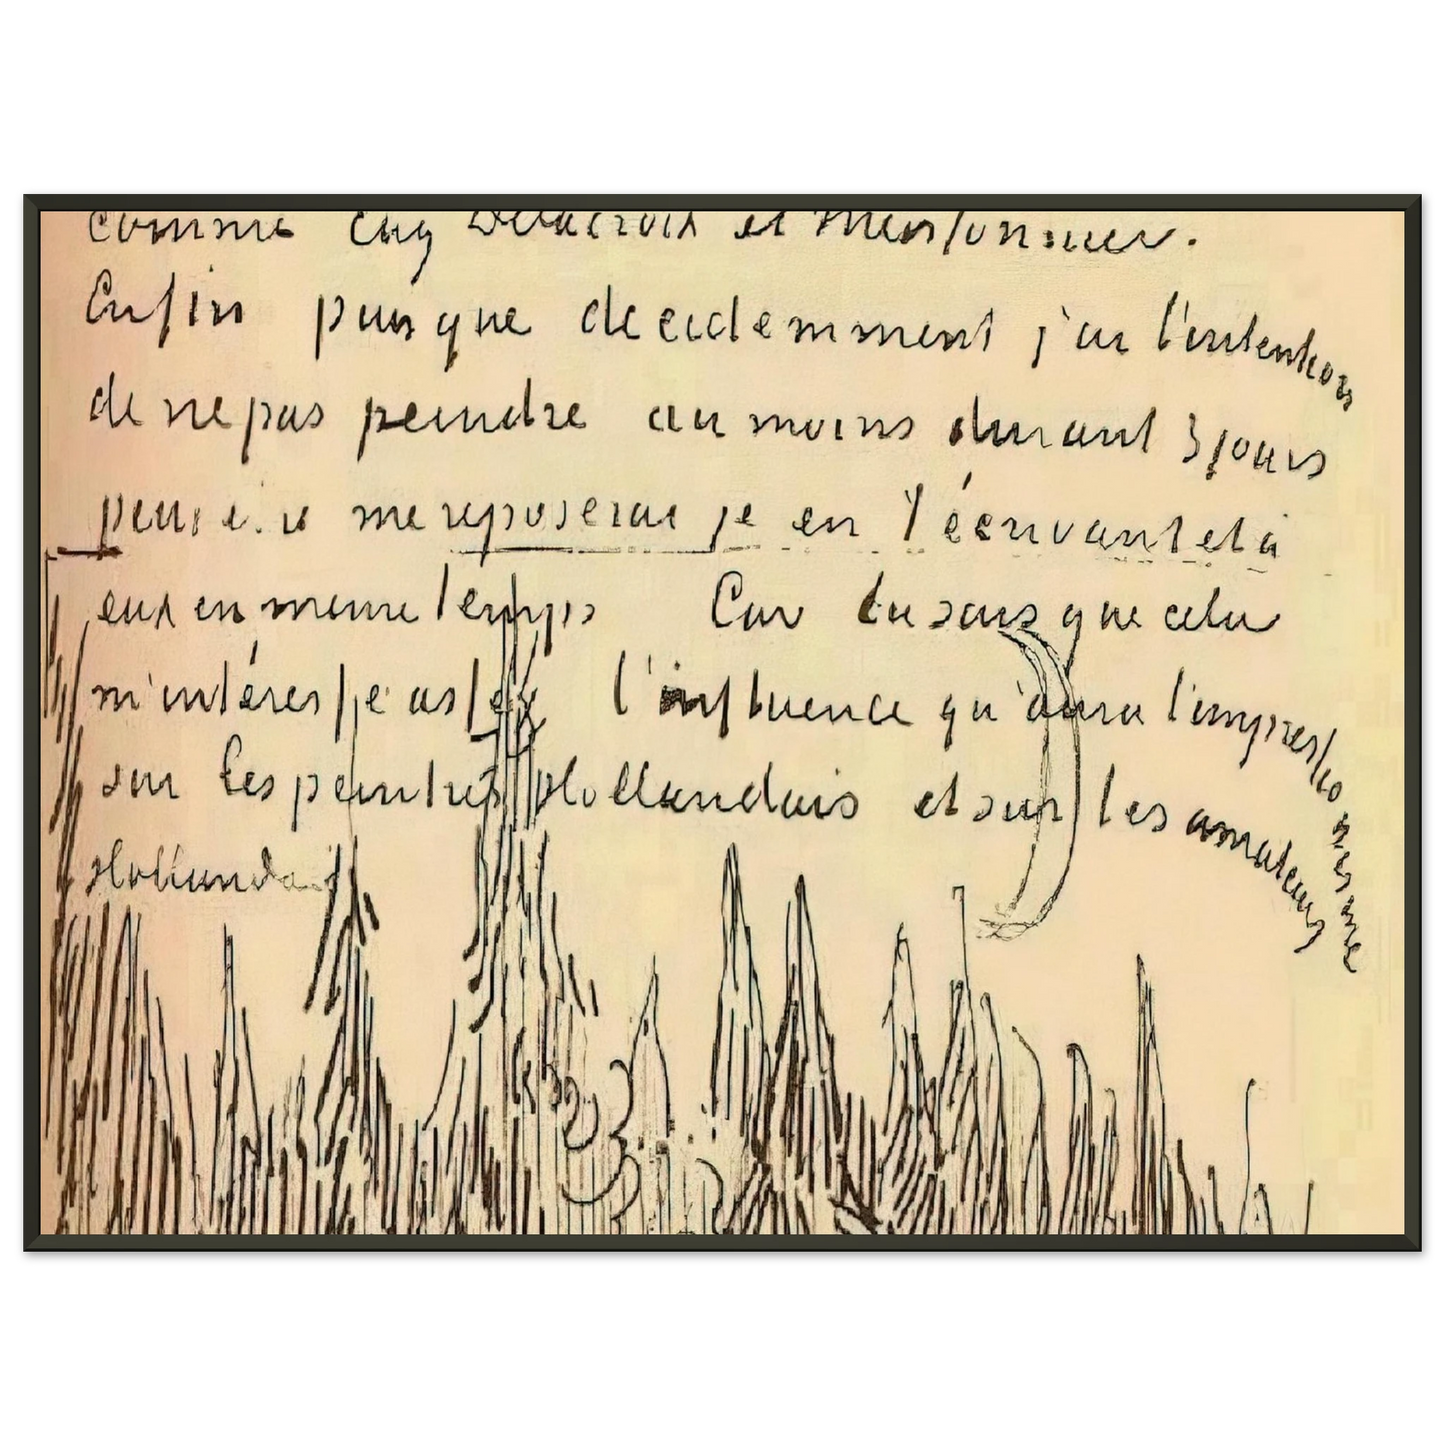 comme chez Delacroix et Meissonnier.
Enfin puisque decidemment j'ai l'intention
de ne pas peindre au moins durant 3 jours
peut être me reposerai je en t'écrivant et à
eux en meme temps Car tu sais que cela
m'intéresse assez l'influence qu'aura l'impressionnisme
sur les peintres Hollandais et sur les amateurs
Hollandais